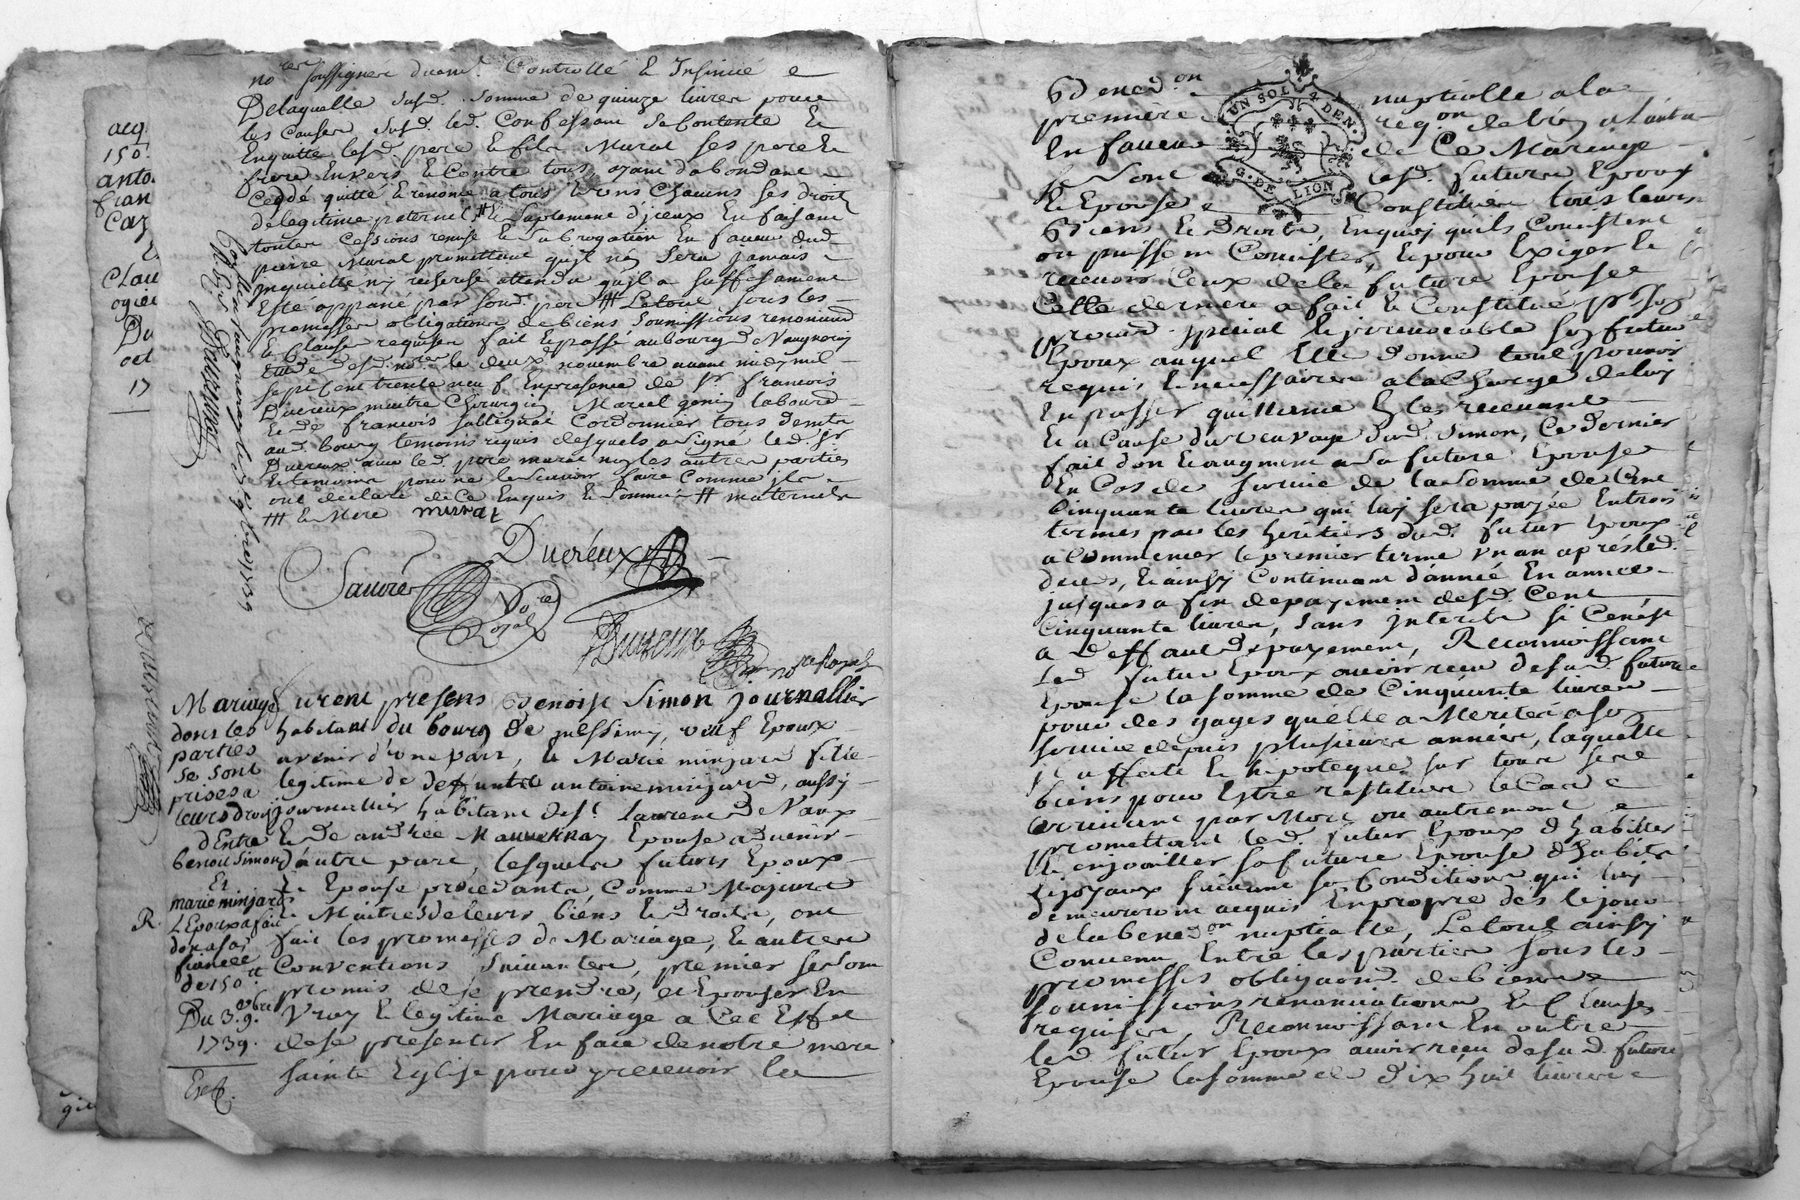 acq.
150.
anto.
fran
Caz
Clau
ogier
Du
oct
17
no.res soussigner duem.t Controllé & Insinué e
De laquelle susd. somme de quinze livres pour
les Causes susd. led. Confessant se Contente Et
Enquitte lesd. pere & fils Murat ses pere Et
frere Envers & Contre tous, ayant d'abondant
Ceddé quitté & renoncé a tous Droits Chacuns ses droit
de legitime paternel, # & Suplement d'jceux En faisant
toutes Cessions remise & Subrogation En faveur dud.
pierre Murat promettant qu'jl n'y Sera jamais
Inquietté ny recherché attendu qu'jl a suffisament
Esté appané par sond. pere ### Letout sous les
promesses obligations de biens soumissions renonciaons
& Clauses requises fait & passé au bourg de Vaugneray
Etude desd. no.res le deux novembre avant midy mil
sept Cent trente neuf En presence de Sr. francois
Ducreux maitre Chirurgien, Marcel geniy laboureur
Et de francois sablignat Cordonnier tous dem.ts
aud. bourg temoins requis desquels a signé led. Sr
Ducreux avec led. pere murat non les autres parties
& temoins pour ne le scavoir faire Comme jls
ont declaré de Ce Enquis & Sommés # maternels
### & Mere murat
Ducreux
Sauvée
No.re
Royal
Ducreux
no.re Royal
Mariage
dont les
parties
se sont
prises a
leurs droits
D'Entre
benoit Simon
Et
marie minjard
L'Epoux a fait
don a sa
fiancée
de 150.tt
Du 3. 9.bre
1739.
Exp.
R.
furent presens Benoist Simon journallier
habitant du bourg de Messimy, veuf Epoux
avenir d'une part, & Marie minjard fille
legitime de deffunt antoine minjard, aussy
journallier habitant de St. laurent de Vaux
& de andrée Mauvernay Epouse advenir
d'autre part, lesquels futurs Epoux
& Epouse procedants Comme Majeurs
& Maitres de leurs biens & droits, ont
fait les promesses de Mariage, & autres
Conventions Suivantes, premier se sont
promis de se prendre, & Epouser En
Vray & legitime Mariage a Cet Effet
de se presenter En face de notre mere
sainte Eglise pour y recevoir la
UN SOL 4 DEN.
G. DE LION
Bened.on nuptialle a la
premiere req.on de l'un a l'autre
En faveur de Ce Mariage
se sont lesd. futurs Epoux
& Epouse Constitués tous leurs
Biens & Droits, En quoy qu'ils Consistent
ou puissent Consister, & pour Exiger &
recevoir Ceux de la future Epouse
Celle derniere a fait & Constitué pr. son
procur. special & jrrevocable son futur
Epoux auquel Elle donne tout pouvoir
requis & necessaire a la Charge de luy
En passer quittance En les recevant
& a Cause du veuvage dud. Simon, Ce dernier
fait don & augment a sa future Epouse
En Cas de survie de la somme de Cent
Cinquante livres qui luy sera payée En trois
termes par les héritiers dud. futur Epoux
a Commencer le premier terme vn an aprés led.
deces, & ainsy Continuant d'année En année
jusques a fin de payement desd. Cent
Cinquante livres, sans jnterets si Cen'est
a deffaut de payement, Reconnoissant
led. futur Epoux avoir recu de sad. future
Epouse la somme de Cinquante livres
pour des gages qu'elle a Merité a son
service depuis plusieurs années, laquelle
jl affecte & hipoteque sur tous ses
biens pour Estre restituée le Cas
arrivant par Mort ou autrement
promettant led. futur Epoux d'habiller
& enjoailler sa future Epouse d'habits
& joyaux suivant sa Condition qui luy
demeureront acquis En propre dés le jour
de la bened.on nuptialle, Le tout ainsy
Convenu Entre les parties sous les
promesses obligaons de biens
soumissions renonciations & Clauses
requises, Reconnoissant En outre
led. futur Epoux avoir recu de sad. future
Epouse la somme de Dix huit livres